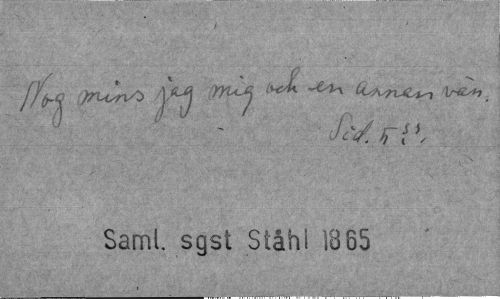 Nog mins jag mig och en annan vän.
Sid. 5
Saml. sgst Ståhl 1865